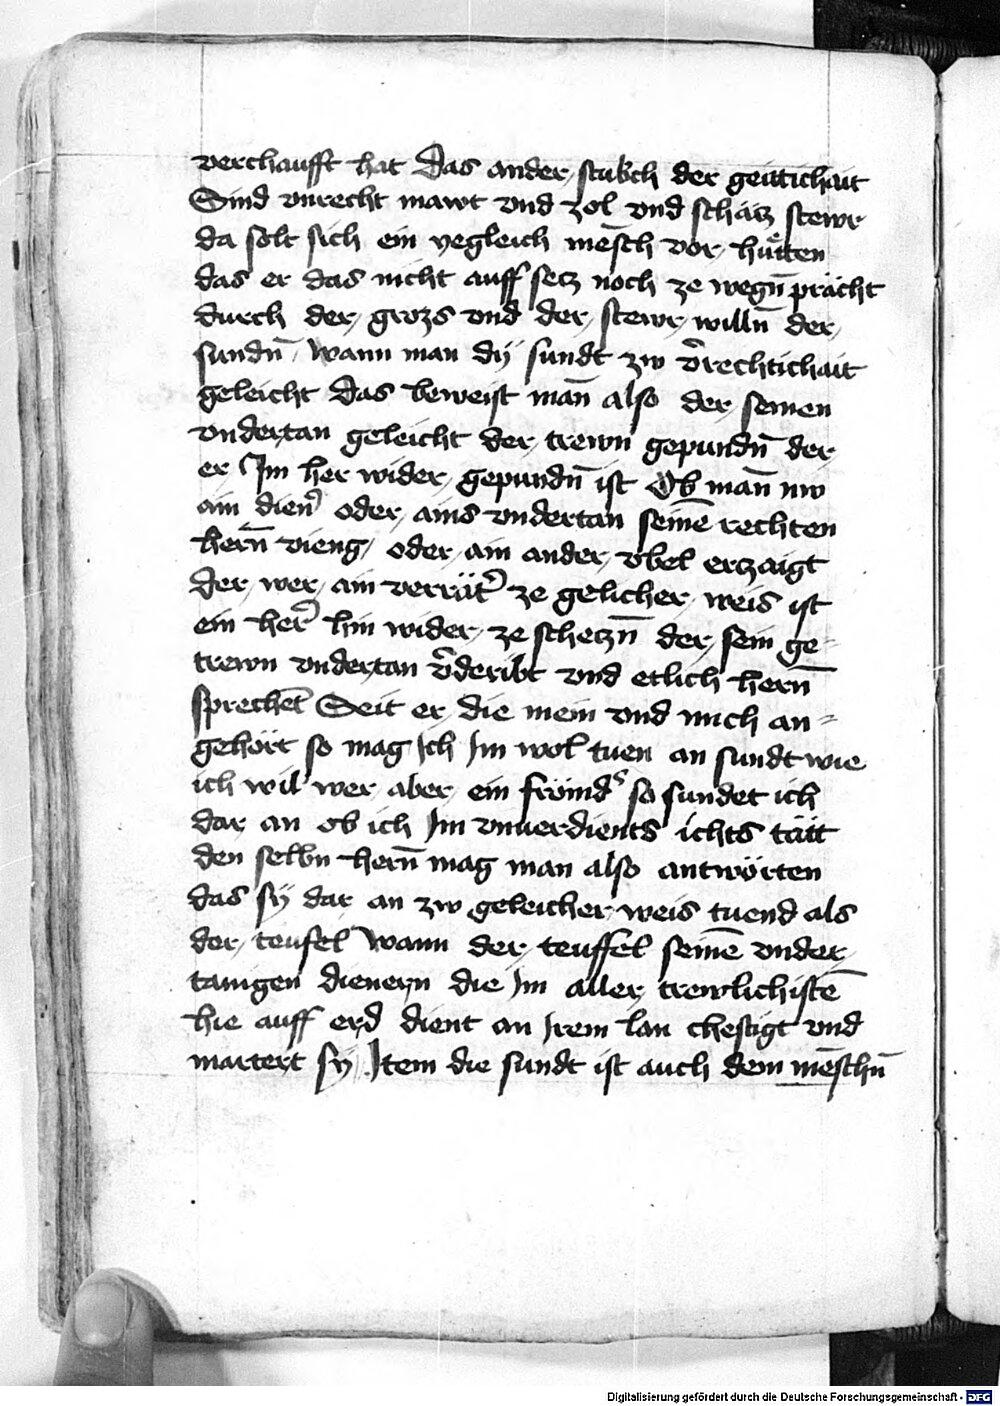 verchaufft hat Das ander stukch der geitichait
Sind vnrecht mawt vnd zol vnd schätz stewr
da solt sich ein yegleich mēsch vor hüetten
das er das nicht auff setz noch ze wegn̄ prächt
durch der grozs vnd der stewr willn̄ der
sundn̄ Wann man dÿ sundt zw v̄rechtichait
geleicht Das beweist man̄ also der seinen
vndertan geleicht der trewn gepundn̄ der
er Im her wider gepundn̄ ist Ob man̄ nw
ain dien̉ oder ains vndertan seinē rechten
hern̄ vieng oder ain ander vbel erczaigt
der wer ain verrät̉ ze gelicher weis ist
ein her̉ hin wider ze schetzn̄ der sein ge-
trewn vndertan v̉deribt vnd etlich hern̄
sprechēt Seit er die mein vnd mich an-
gehört so mag Ich Im wol tuen an sundt wie
ich wil wer aber ein frömd̉ so sundet ich
dar an ob ich Im vnuerdients ichts tätt
den selbn hern̄ mag man also antwörten
das sÿ dar an zw geleicher weis tuend als
der teufel Wann der teuffel seinē vnder
tanigen dienern die Im aller trewlichistē
hie auff erd dient an Irem lan chestigt vnd
martert sÿ Item die sundt ist auch dem mēschn̄
Digitalisierung gefördert durch die Deutsche Forschungsgemeinschaft - DFG